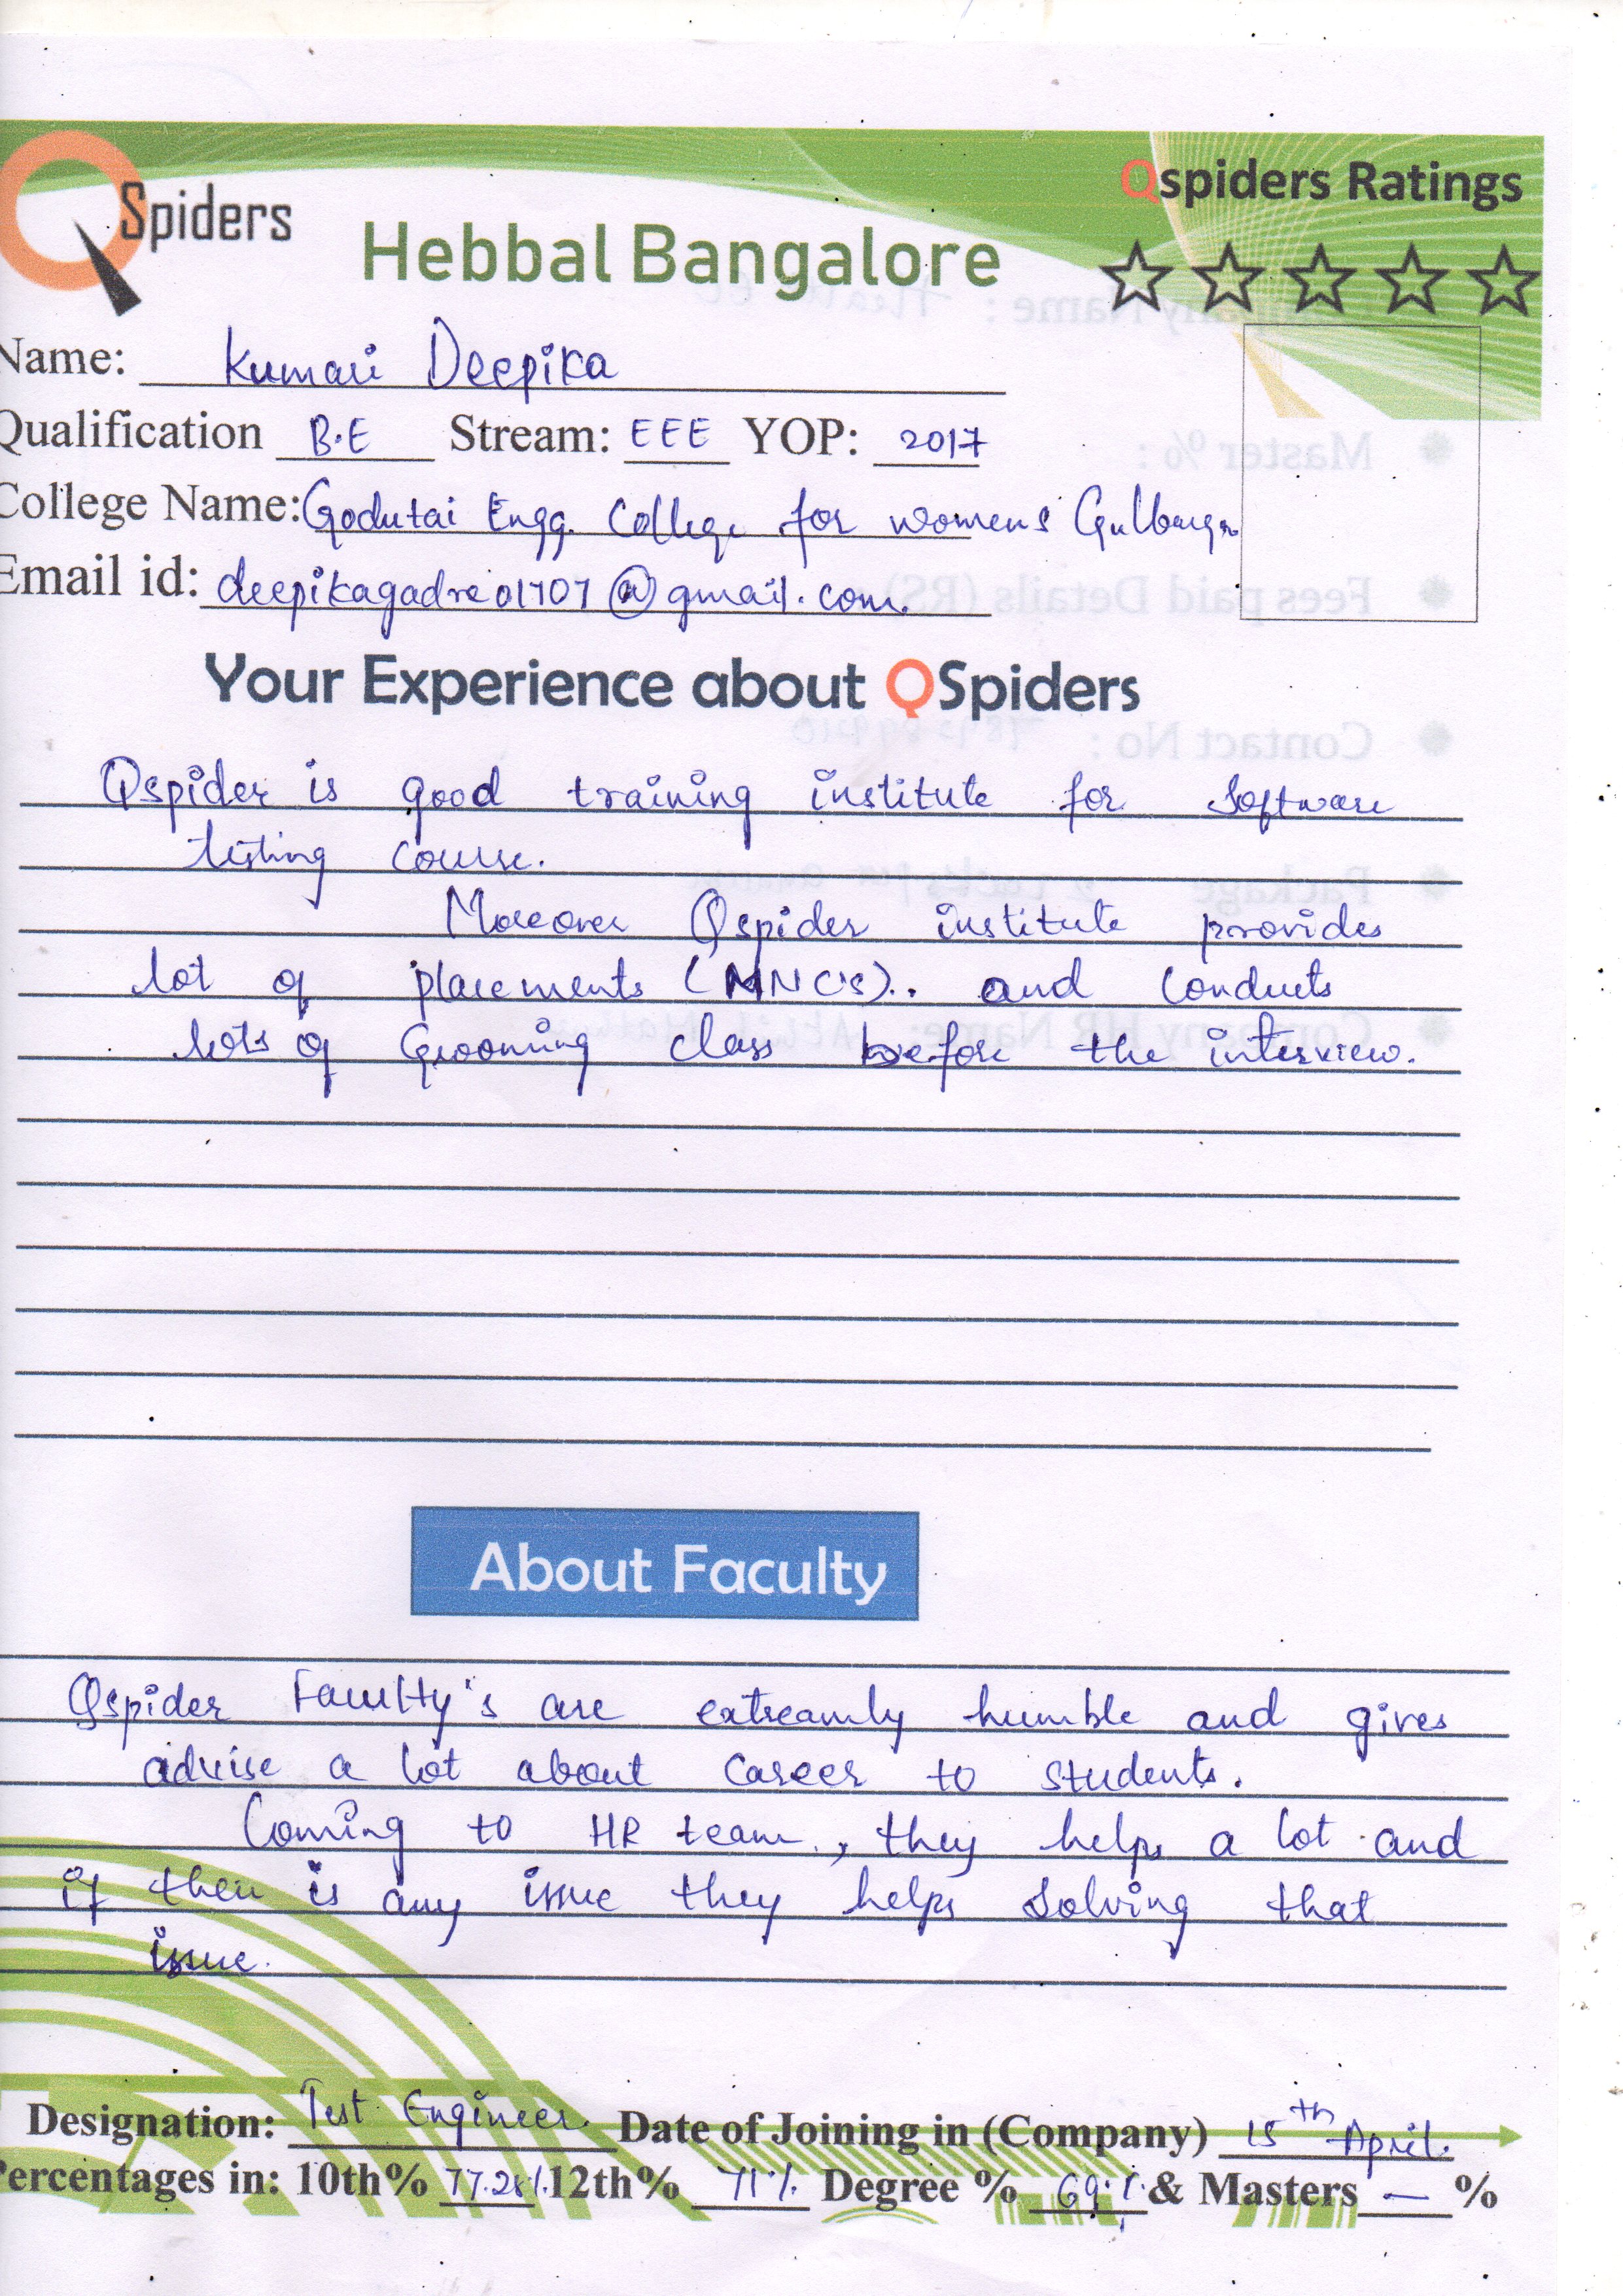 QSpiders
Qspiders Ratings
Hebbal Bangalore
Name: Kumari Deepika
Qualification B.E Stream: EEE YOP: 2017
College Name: Godutai Engg. College for womens Gulbarga
Email id: deepikagadre01707@gmail.com.
Your Experience about QSpiders
Qspider is good training institute for software
testing course.
Moreover Qspider institute provides
lot of placements (MNC's).. and conducts
lots of Grooming class before the interview.
About Faculty
Qspider Faculty's are extreamly humble and gives
advise a lot about career to students.
Coming to HR team, they helps a lot and
if their is any issue they helps solving that
issue.
Designation: Test Engineer. Date of Joining in (Company) 15th April.
Percentages in: 10th% 77.28% 12th% 71% Degree % 69% & Masters — %